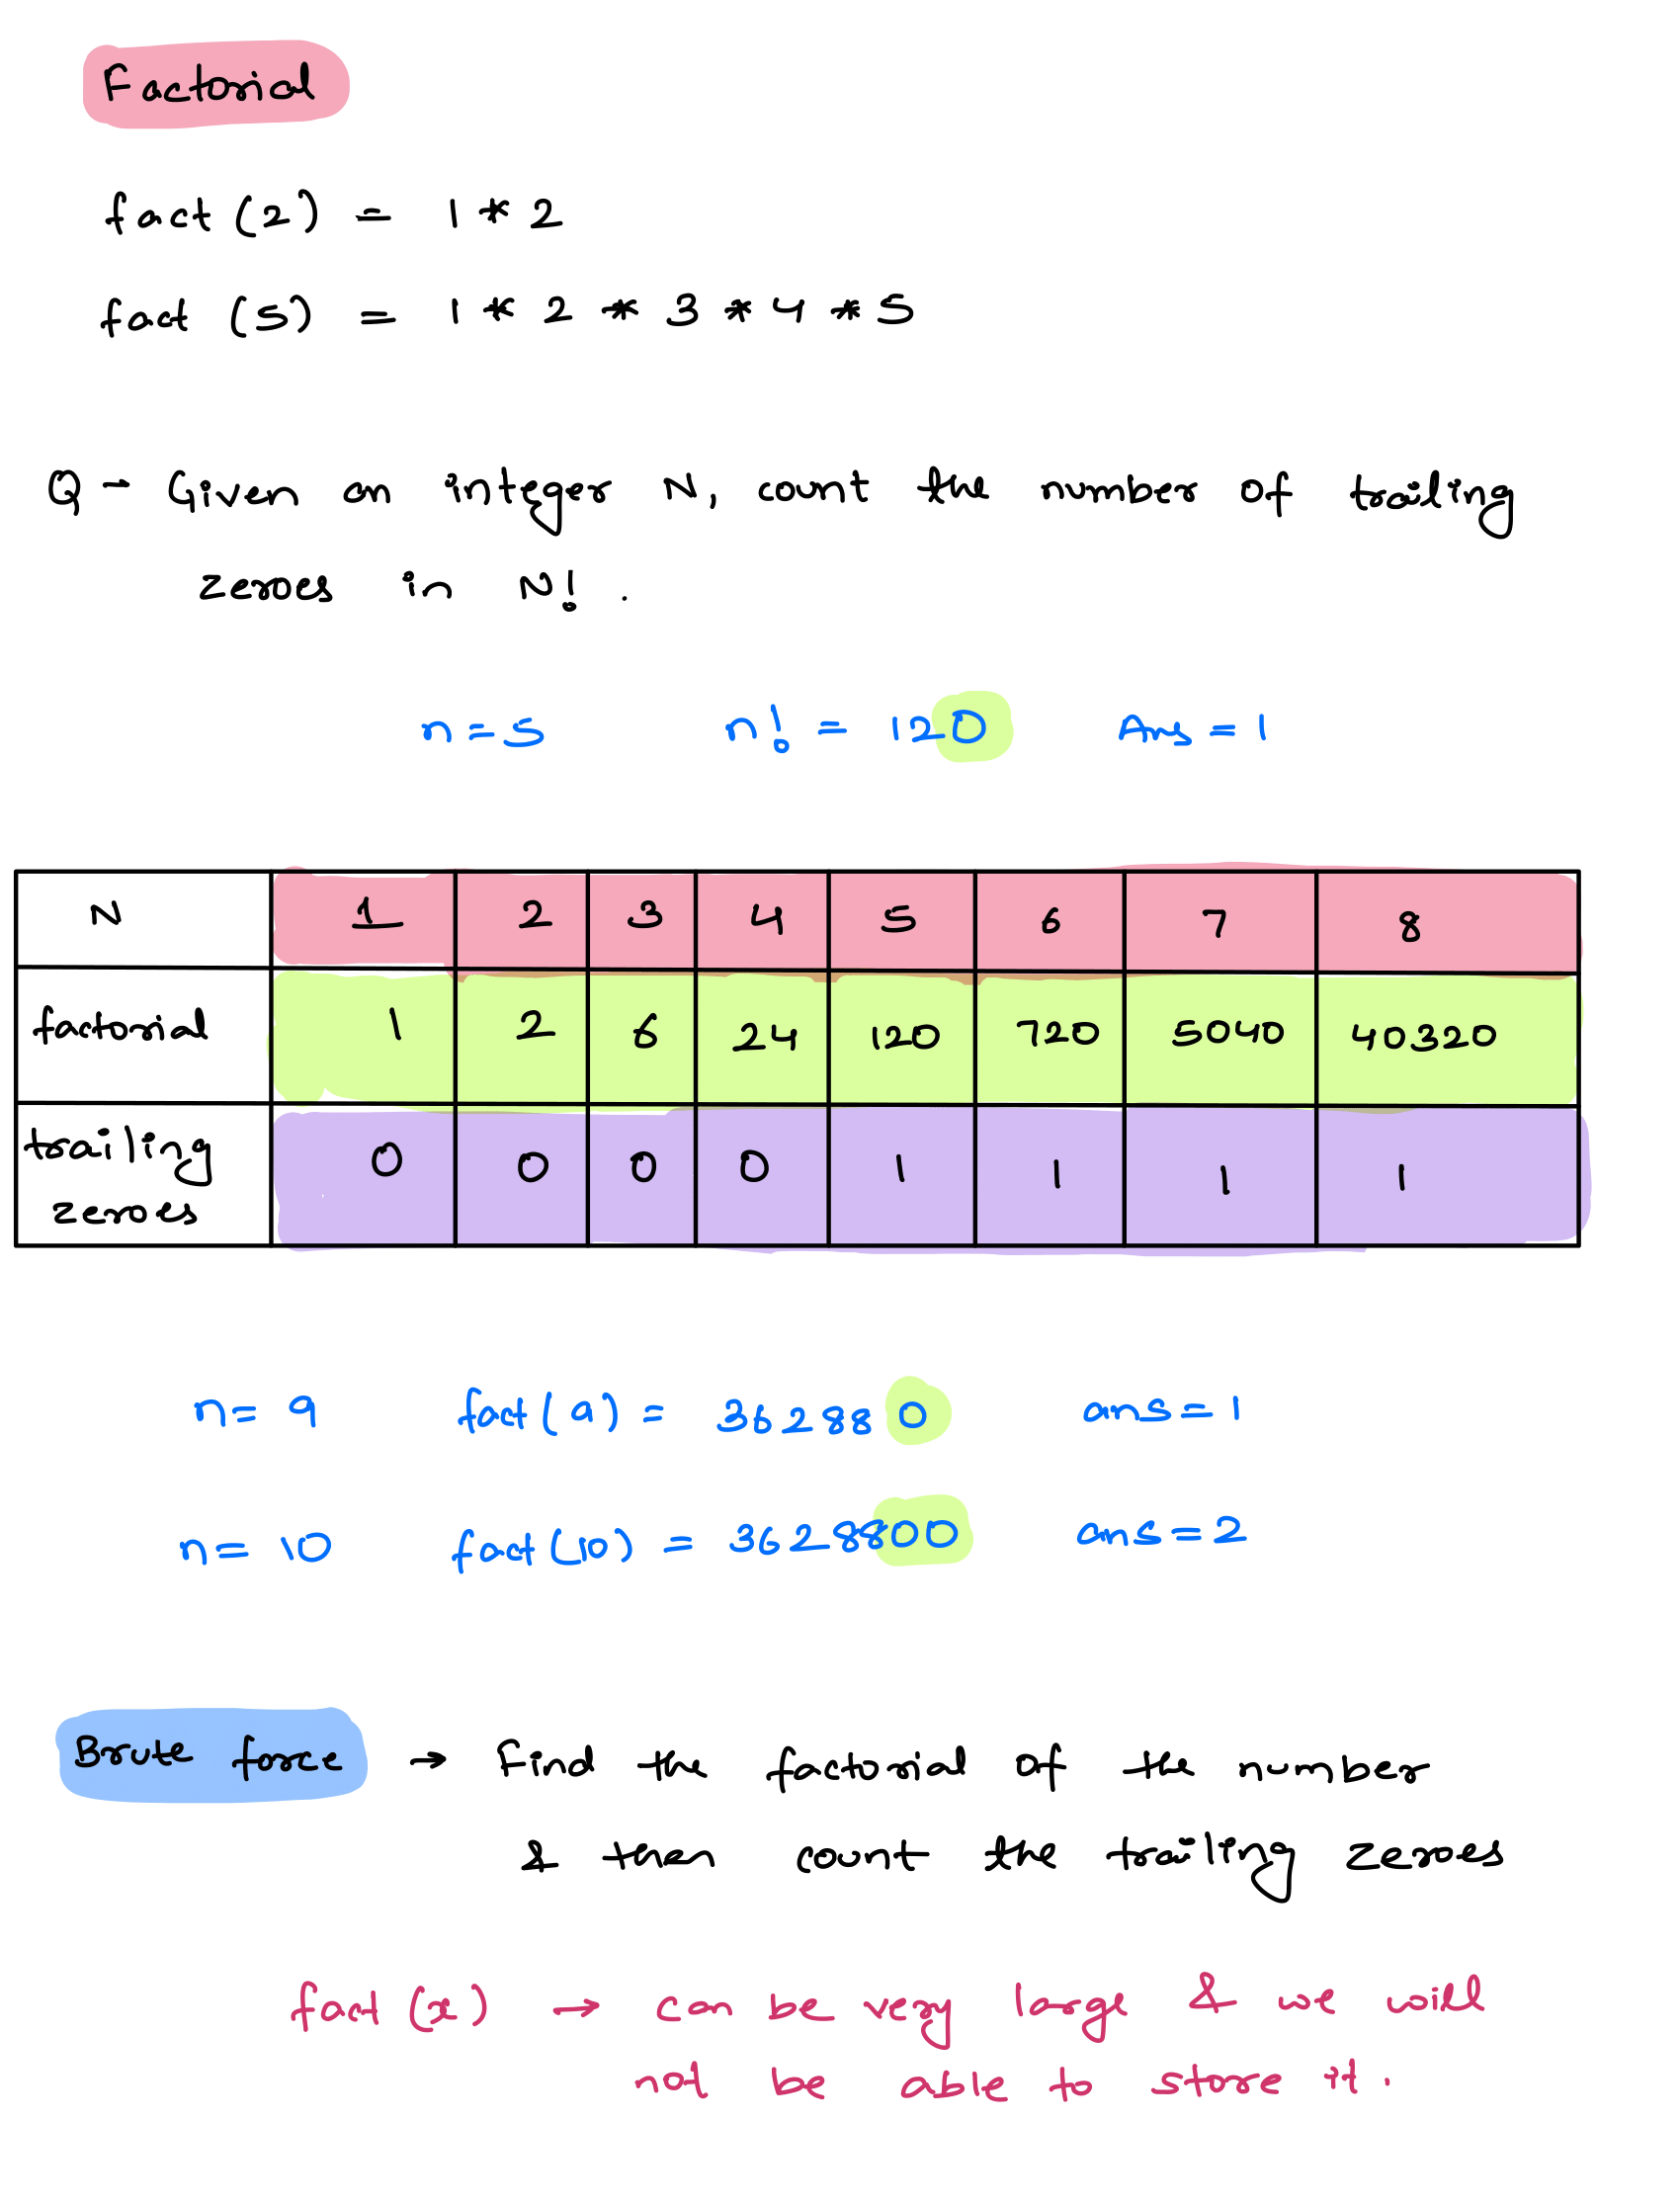 Factorial
fact (2) = 1 * 2
fact (5) = 1 * 2 * 3 * 4 * 5
Q - Given an integer N, count the number of trailing
zeroes in N! .
n=5 n! = 120 Ans = 1
N 1 2 3 4 5 6 7 8
factorial 1 2 6 24 120 720 5040 40320
trailing zeroes 0 0 0 0 1 1 1 1
n= 9 fact(9) = 362880 ans=1
n= 10 fact(10) = 3628800 ans=2
Brute force → Find the factorial of the number
& then count the trailing zeroes
fact (x) → can be very large & we will
not be able to store it.